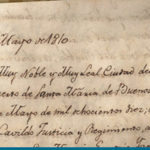 Mayo de 1810
Muy Noble y Muy Leal Ciudad de
Puerto de Santa Maria de Buenos
de Mayo de mil ochocientos diez;
Cavildo Justicia y Regimiento, a